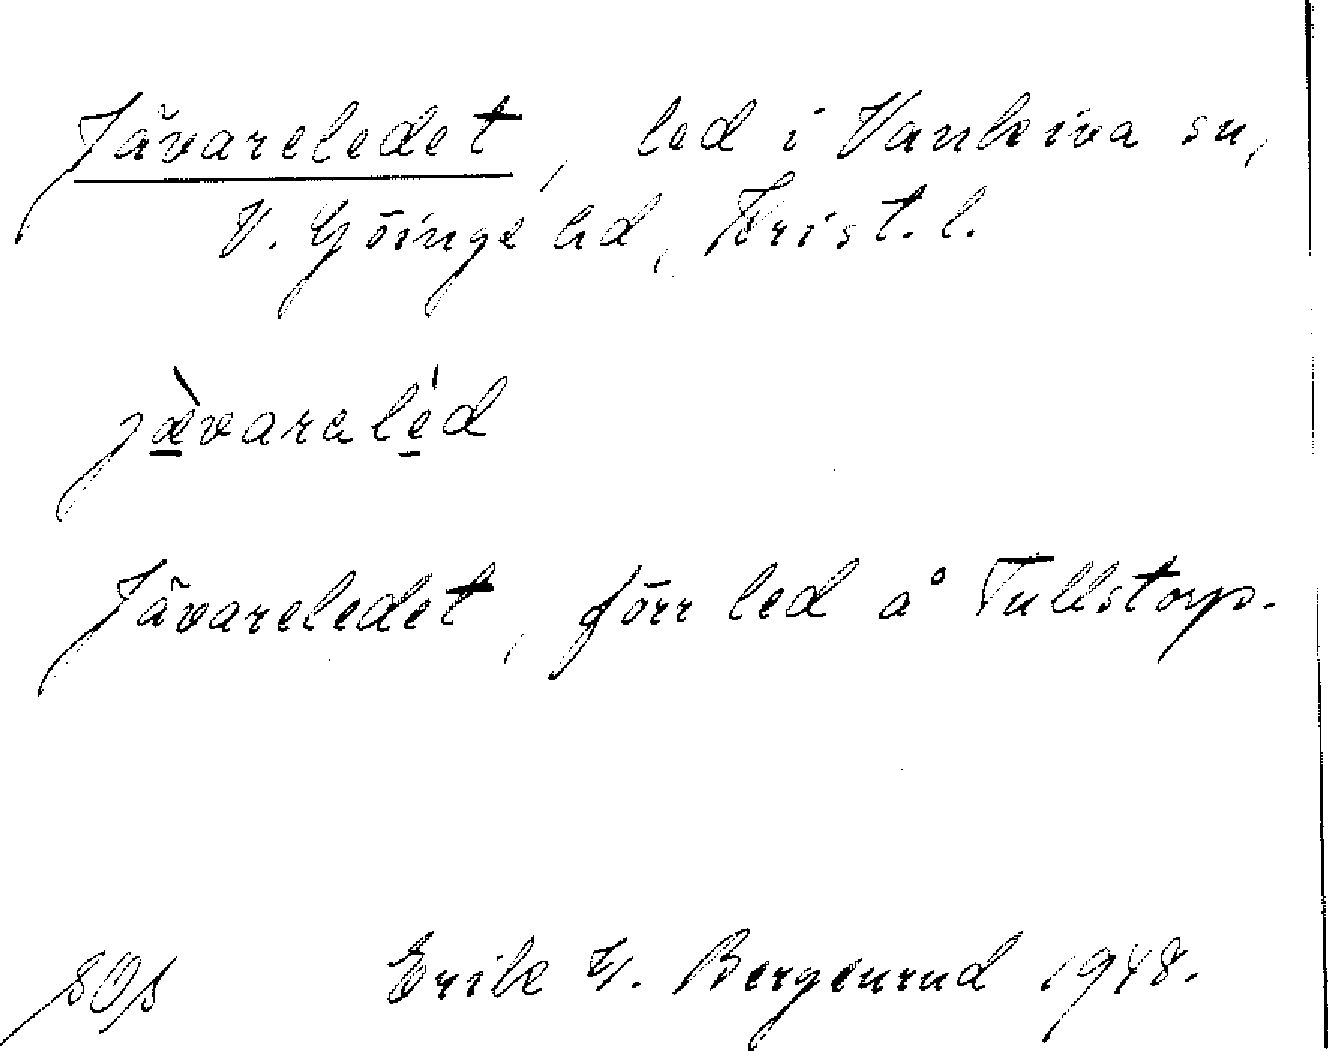 Jävareledet, led i Vankiva sn,
V. Göinge hd, Krist. l.
jævaraled
Jävareledet, förr led å Tullstorp.
Erik G. Bergenrud 1948.